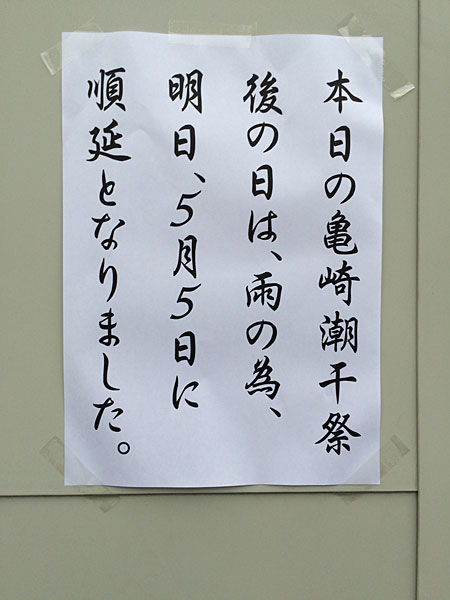 本日の亀崎潮干祭
後の日は、雨の為、
明日、5月5日に
順延となりました。